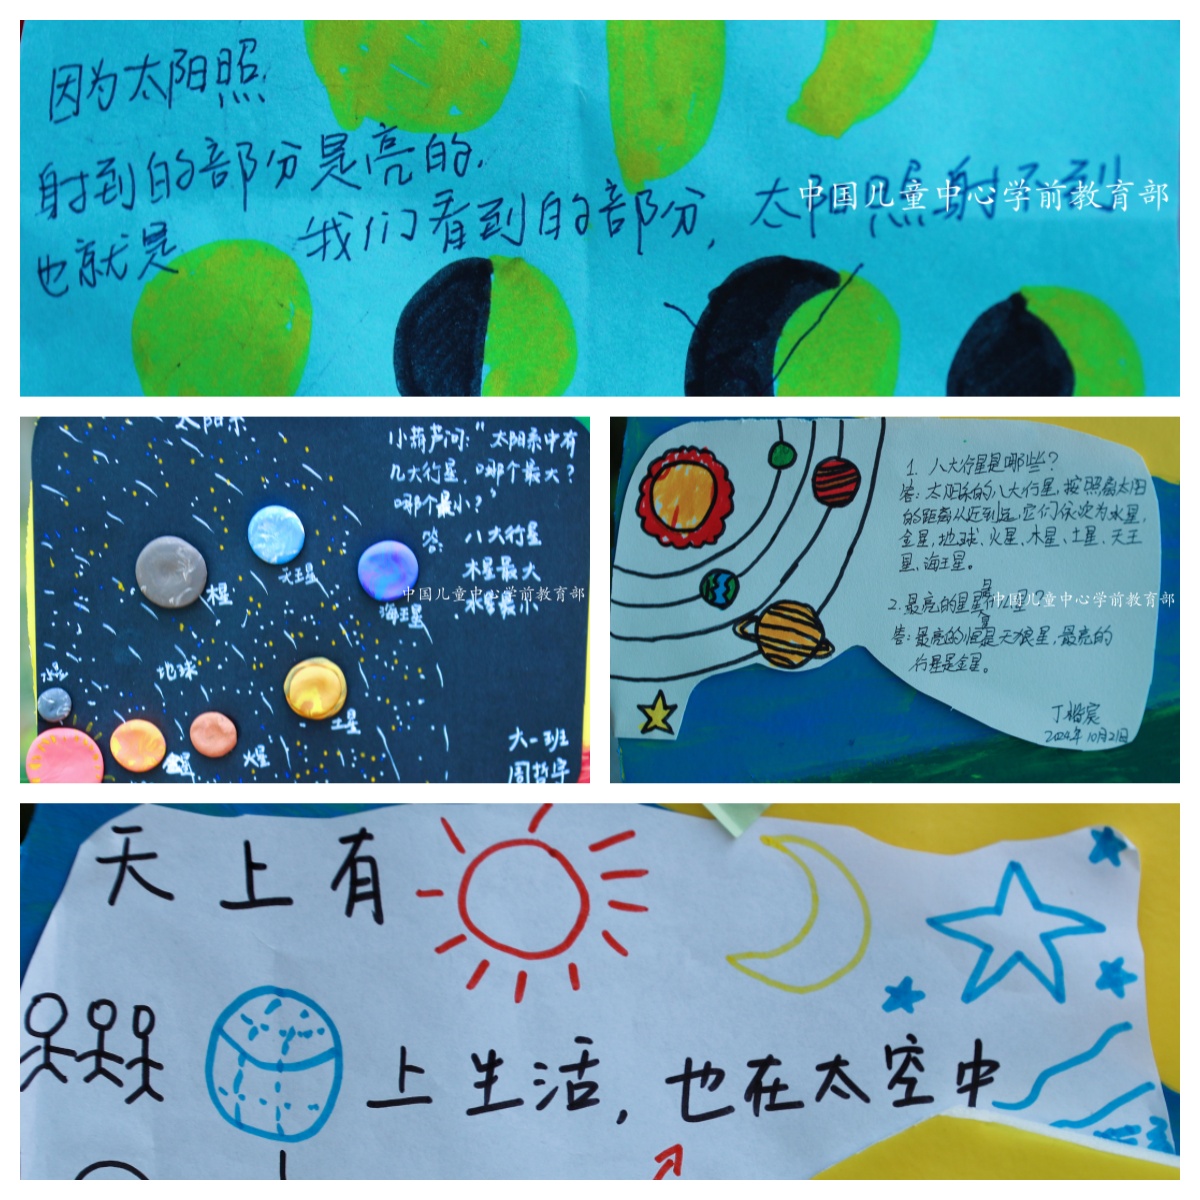 因为太阳照
射到的部分是亮的.
也就是 我们看到的部分, 太阳照射不到
中国儿童中心学前教育部
太阳系
小葫芦问:"太阳系中有
几大行星,哪个最大?
哪个最小?"
答: 八大行星
木星最大
水星最小
中国儿童中心学前教育部
木星
天王星
海王星
地球
水星
土星
金星
火星
大一班
周哲宇
1. 八大行星是哪些?
答: 太阳系的八大行星,按照离太阳
的距离从近到远,它们依次为水星,
金星,地球、火星、木星、土星、天王
星,海王星。
中国儿童中心学前教育部
2. 最亮的星星是什么星?
答: 最亮的恒星是天狼星,最亮的
行星是金星。
2024年10月2日
天上有
上生活,也在太空中